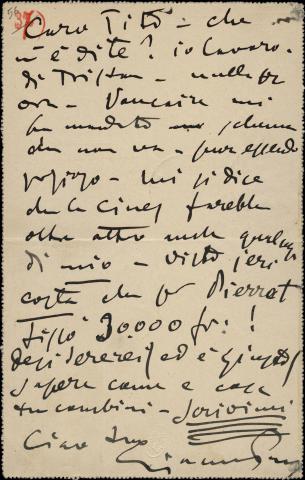 37
Caro Tito - che
n'è di te? io lavoro.
di Tristan - nulla per
ora - Vaucaire mi
ha mandato schema
che non va - pur essendo
grazioso - mi si dice
che la Cines farebbe
oltre altro anche qualcosa
di mio - visto ieri
Costa che per Pierrot
fissò 30000 fr!!
Desidererei ed è giusto
sapere come e cosa
tu combini - Scrivimi
Ciao tuo
Giacomo